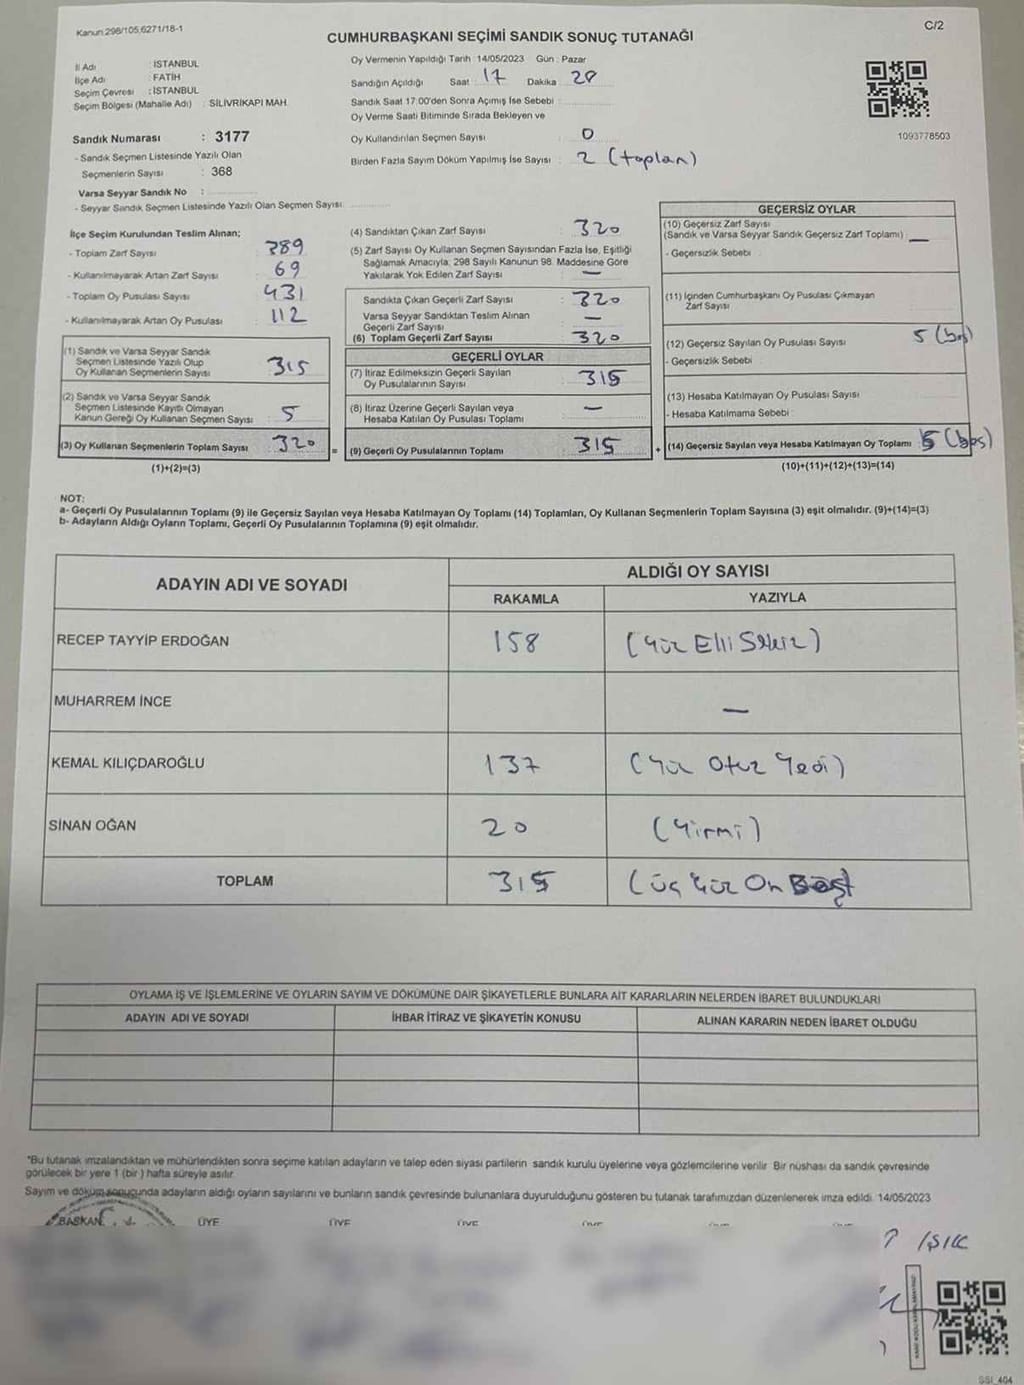 Kanun:298/105,6271/18-1
C/2
CUMHURBAŞKANI SEÇİMİ SANDIK SONUÇ TUTANAĞI
İl Adı : İSTANBUL
İlçe Adı : FATİH
Seçim Çevresi : İSTANBUL
Seçim Bölgesi (Mahalle Adı) : SİLİVRİKAPI MAH.
Oy Vermenin Yapıldığı Tarih : 14/05/2023 Gün : Pazar
Sandığın Açıldığı Saat : 17 Dakika : 28
Sandık Saat 17:00'den Sonra Açımış İse Sebebi :
Oy Verme Saati Bitiminde Sırada Bekleyen ve
Oy Kullandırılan Seçmen Sayısı : 0
Birden Fazla Sayım Döküm Yapılmış İse Sayısı : 2 (toplan)
1093778503
Sandık Numarası : 3177
- Sandık Seçmen Listesinde Yazılı Olan
Seçmenlerin Sayısı : 368
Varsa Seyyar Sandık No :
- Seyyar Sandık Seçmen Listesinde Yazılı Olan Seçmen Sayısı:
İlçe Seçim Kurulundan Teslim Alınan;
- Toplam Zarf Sayısı : 389
- Kullanılmayarak Artan Zarf Sayısı : 69
- Toplam Oy Pusulası Sayısı : 431
- Kullanılmayarak Artan Oy Pusulası : 112
(1) Sandık ve Varsa Seyyar Sandık
Seçmen Listesinde Yazılı Olup
Oy Kullanan Seçmenlerin Sayısı : 315
(2) Sandık ve Varsa Seyyar Sandık
Seçmen Listesinde Kayıtlı Olmayan
Kanun Gereği Oy Kullanan Seçmen Sayısı : 5
(3) Oy Kullanan Seçmenlerin Toplam Sayısı : 320
(1)+(2)=(3)
(4) Sandıktan Çıkan Zarf Sayısı : 320
(5) Zarf Sayısı Oy Kullanan Seçmen Sayısından Fazla İse, Eşitliği
Sağlamak Amacıyla; 298 Sayılı Kanunun 98. Maddesine Göre
Yakılarak Yok Edilen Zarf Sayısı : —
Sandıkta Çıkan Geçerli Zarf Sayısı : 320
Varsa Seyyar Sandıktan Teslim Alınan
Geçerli Zarf Sayısı : —
(6) Toplam Geçerli Zarf Sayısı : 320
GEÇERLİ OYLAR
(7) İtiraz Edilmeksizin Geçerli Sayılan
Oy Pusulalarının Sayısı : 315
(8) İtiraz Üzerine Geçerli Sayılan veya
Hesaba Katılan Oy Pusulası Toplamı : —
= (9) Geçerli Oy Pusulalarının Toplamı : 315
GEÇERSİZ OYLAR
(10) Geçersiz Zarf Sayısı
(Sandık ve Varsa Seyyar Sandık Geçersiz Zarf Toplamı) : —
- Geçersizlik Sebebi :
(11) İçinden Cumhurbaşkanı Oy Pusulası Çıkmayan
Zarf Sayısı :
(12) Geçersiz Sayılan Oy Pusulası Sayısı : 5 (boş)
- Geçersizlik Sebebi :
(13) Hesaba Katılmayan Oy Pusulası Sayısı :
- Hesaba Katılmama Sebebi :
+ (14) Geçersiz Sayılan veya Hesaba Katılmayan Oy Toplamı : 5 (boş)
(10)+(11)+(12)+(13)=(14)
NOT:
a- Geçerli Oy Pusulalarının Toplamı (9) ile Geçersiz Sayılan veya Hesaba Katılmayan Oy Toplamı (14) Toplamları, Oy Kullanan Seçmenlerin Toplam Sayısına (3) eşit olmalıdır. (9)+(14)=(3)
b- Adayların Aldığı Oyların Toplamı, Geçerli Oy Pusulalarının Toplamına (9) eşit olmalıdır.
ADAYIN ADI VE SOYADI
ALDIĞI OY SAYISI
RAKAMLA YAZIYLA
RECEP TAYYİP ERDOĞAN 158 (Yüz Elli Sekiz)
MUHARREM İNCE —
KEMAL KILIÇDAROĞLU 137 (Yüz Otuz Yedi)
SİNAN OĞAN 20 (Yirmi)
TOPLAM 315 (Üç Yüz On Beş)
OYLAMA İŞ VE İŞLEMLERİNE VE OYLARIN SAYIM VE DÖKÜMÜNE DAİR ŞİKAYETLERLE BUNLARA AİT KARARLARIN NELERDEN İBARET BULUNDUKLARI
ADAYIN ADI VE SOYADI İHBAR İTİRAZ VE ŞİKAYETİN KONUSU ALINAN KARARIN NEDEN İBARET OLDUĞU
*Bu tutanak imzalandıktan ve mühürlendikten sonra seçime katılan adayların ve talep eden siyasi partilerin sandık kurulu üyelerine veya gözlemcilerine verilir. Bir nüshası da sandık çevresinde
görülecek bir yere 1 (bir ) hafta süreyle asılır.
Sayım ve döküm sonucunda adayların aldığı oyların sayılarını ve bunların sandık çevresinde bulunanlara duyurulduğunu gösteren bu tutanak tarafımızdan düzenlenerek imza edildi. 14/05/2023
BAŞKAN ÜYE ÜYE ÜYE
IŞIK
SSI_404